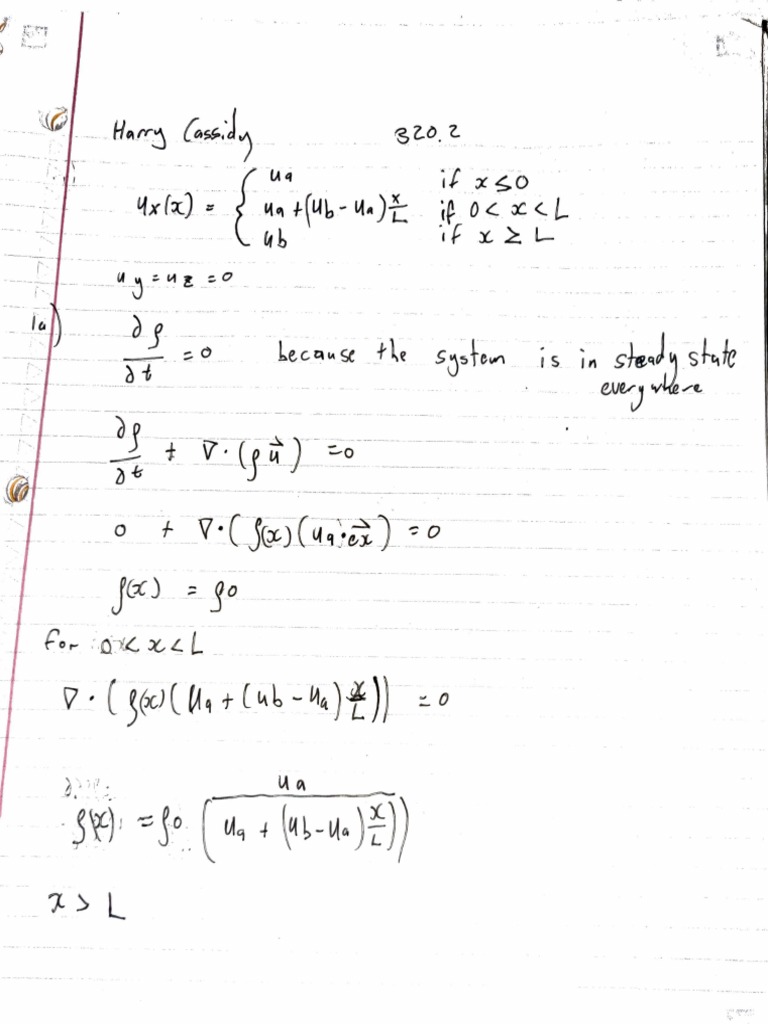 Harry Cassidy 320.2
ux(x) = { ua if x ≤ 0
ua + (ub - ua) x/L if 0 < x < L
ub if x ≥ L
uy = uz = 0
1a) ∂ρ/∂t = 0 because the system is in steady state
everywhere
∂ρ/∂t + ∇·(ρu⃗) = 0
0 + ∇·(ρ(x)(ua·e⃗x) = 0
ρ(x) = ρ0
for 0 < x < L
∇·(ρ(x)(ua + (ub - ua) x/L)) = 0
ρ(x) = ρ0 (ua / (ua + (ub - ua) x/L))
x > L